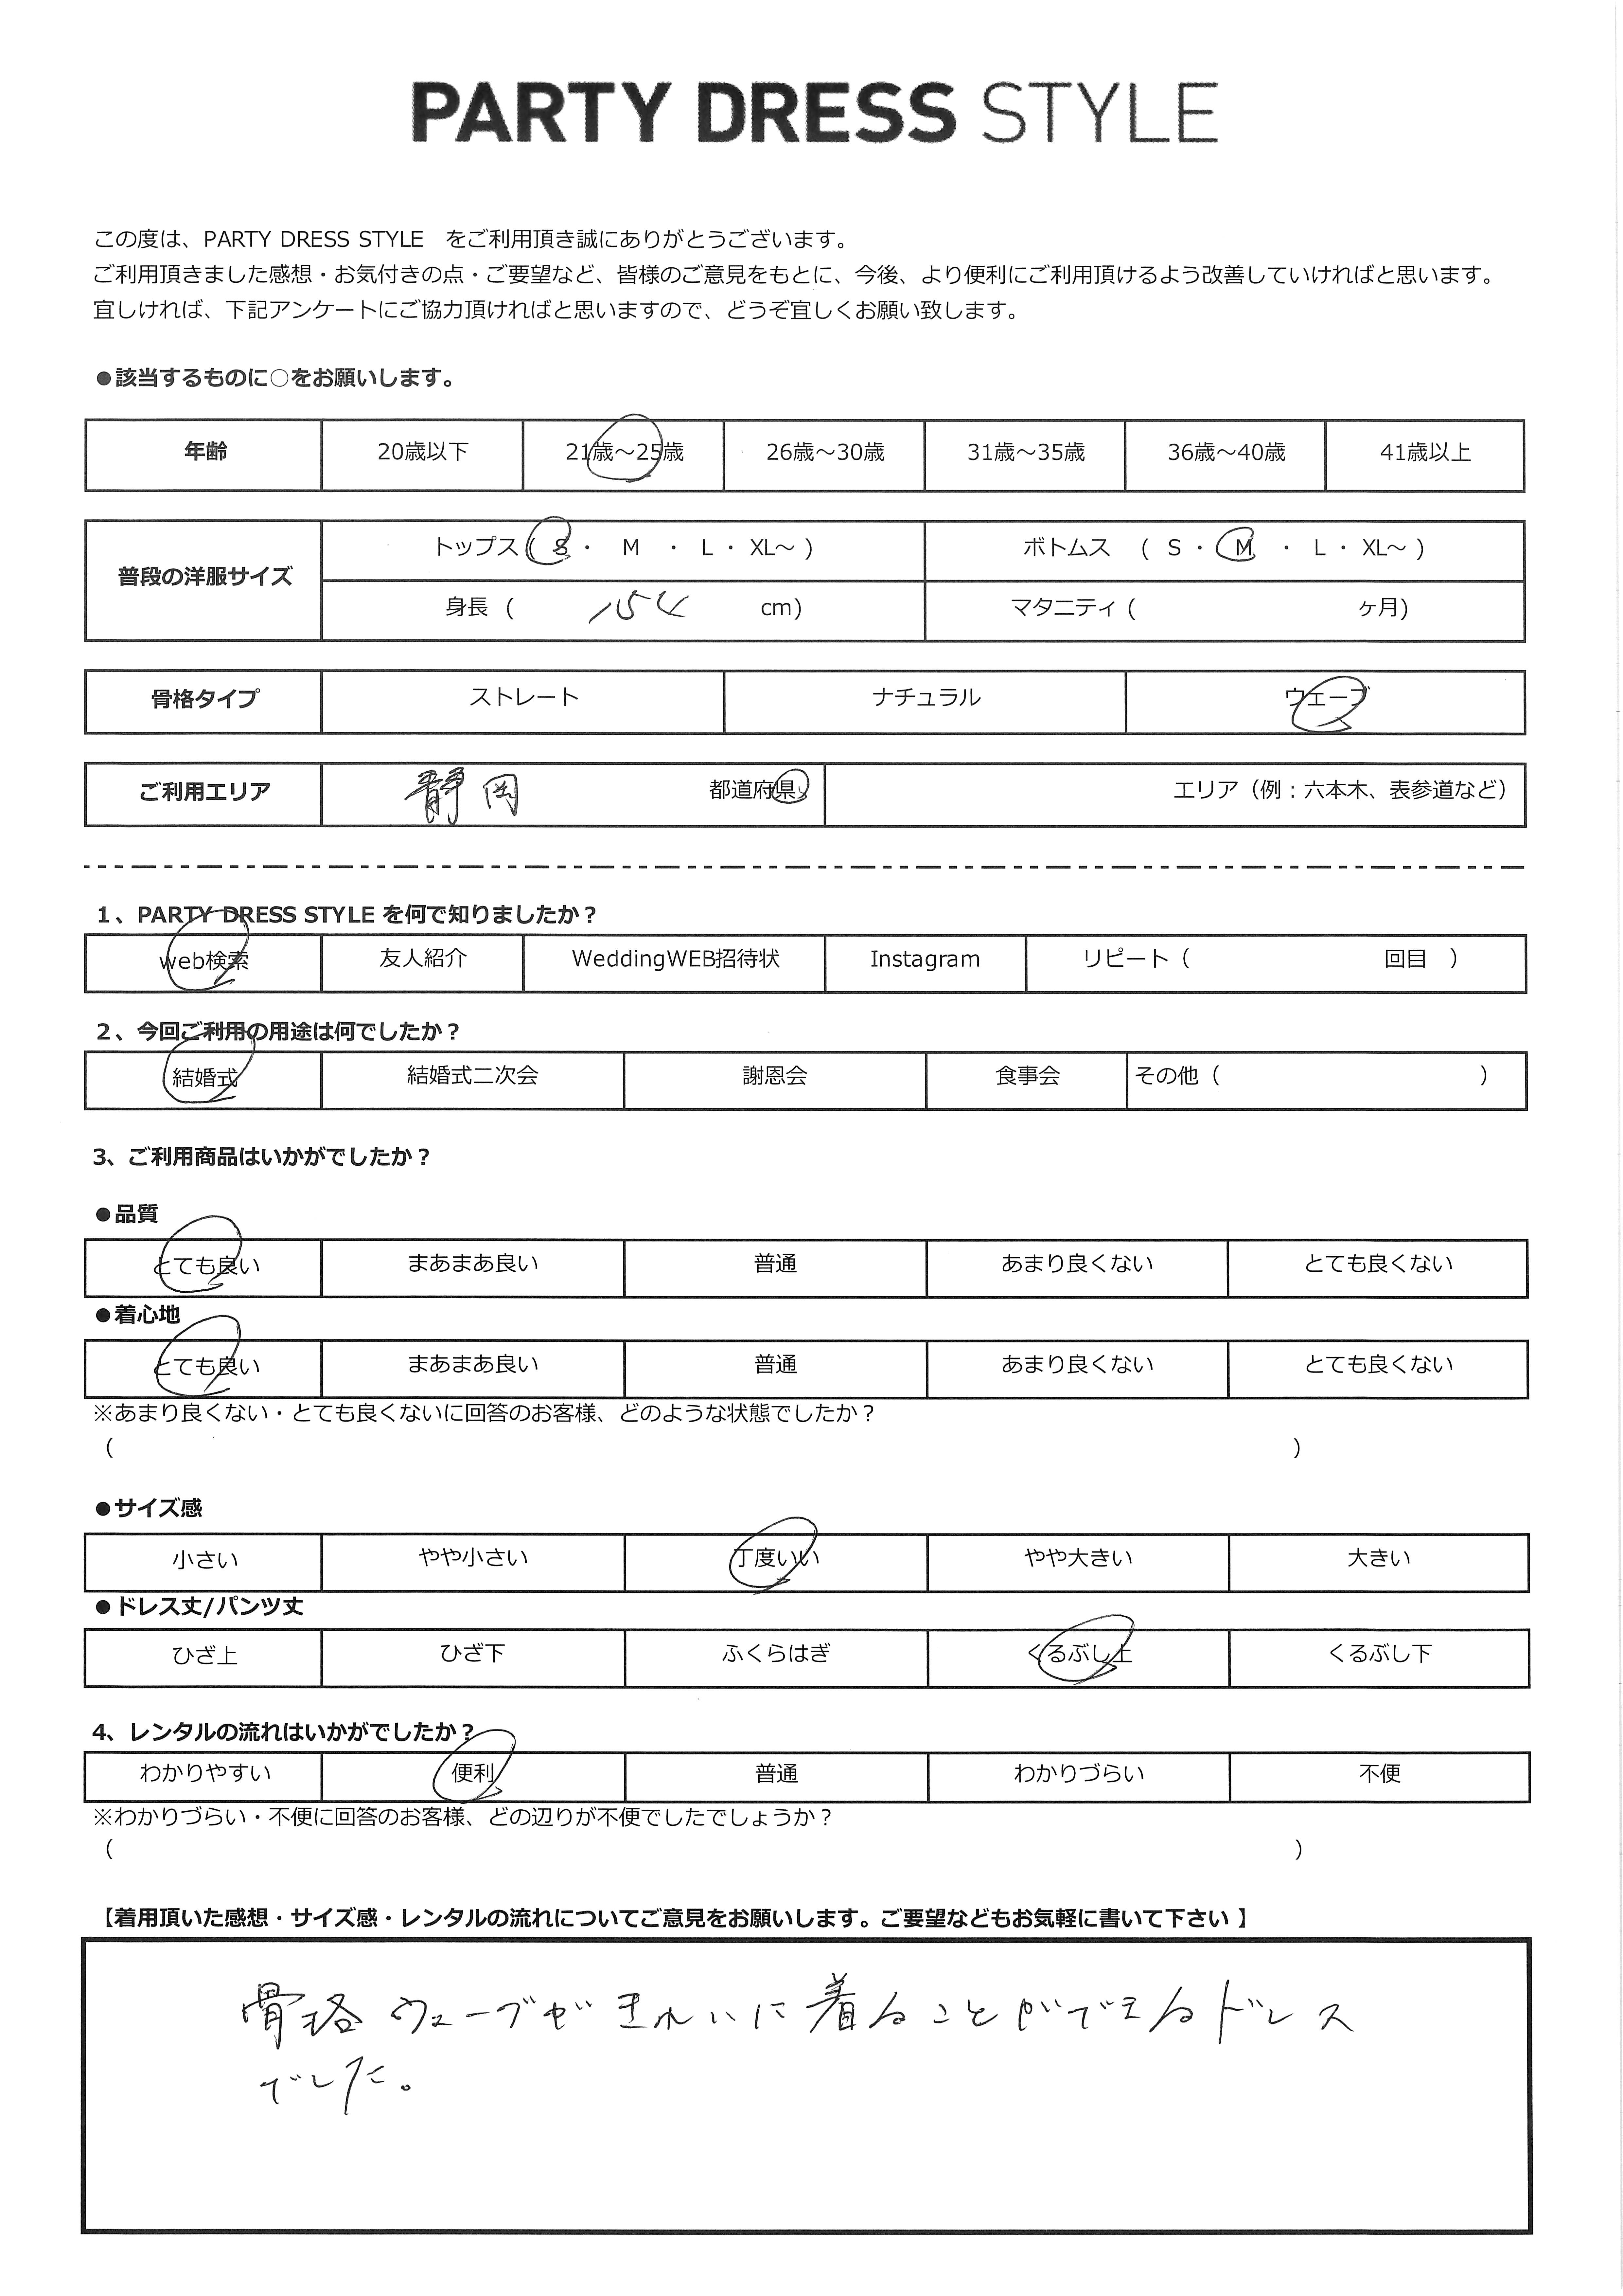 PARTY DRESS STYLE
この度は、PARTY DRESS STYLE をご利用頂き誠にありがとうございます。
ご利用頂きました感想・お気付きの点・ご要望など、皆様のご意見をもとに、今後、より便利にご利用頂けるよう改善していければと思います。
宜しければ、下記アンケートにご協力頂ければと思いますので、どうぞ宜しくお願い致します。
●該当するものに○をお願いします。
年齢 20歳以下 21歳～25歳 26歳～30歳 31歳～35歳 36歳～40歳 41歳以上
普段の洋服サイズ
トップス ( S ・ M ・ L ・ XL～ ) ボトムス ( S ・ M ・ L ・ XL～ )
身長 ( 154 cm) マタニティ ( ヶ月)
骨格タイプ ストレート ナチュラル ウェーブ
ご利用エリア 静岡 都道府県 エリア（例：六本木、表参道など）
1、PARTY DRESS STYLE を何で知りましたか？
web検索 友人紹介 WeddingWEB招待状 Instagram リピート（ 回目 ）
2、今回ご利用の用途は何でしたか？
結婚式 結婚式二次会 謝恩会 食事会 その他（ ）
3、ご利用商品はいかがでしたか？
●品質
とても良い まあまあ良い 普通 あまり良くない とても良くない
●着心地
とても良い まあまあ良い 普通 あまり良くない とても良くない
※あまり良くない・とても良くないに回答のお客様、どのような状態でしたか？
（ ）
●サイズ感
小さい やや小さい 丁度いい やや大きい 大きい
●ドレス丈/パンツ丈
ひざ上 ひざ下 ふくらはぎ くるぶし上 くるぶし下
4、レンタルの流れはいかがでしたか？
わかりやすい 便利 普通 わかりづらい 不便
※わかりづらい・不便に回答のお客様、どの辺りが不便でしたでしょうか？
（ ）
【着用頂いた感想・サイズ感・レンタルの流れについてご意見をお願いします。ご要望などもお気軽に書いて下さい 】
骨格ウェーブがきれいに着ることができるドレス
でした。